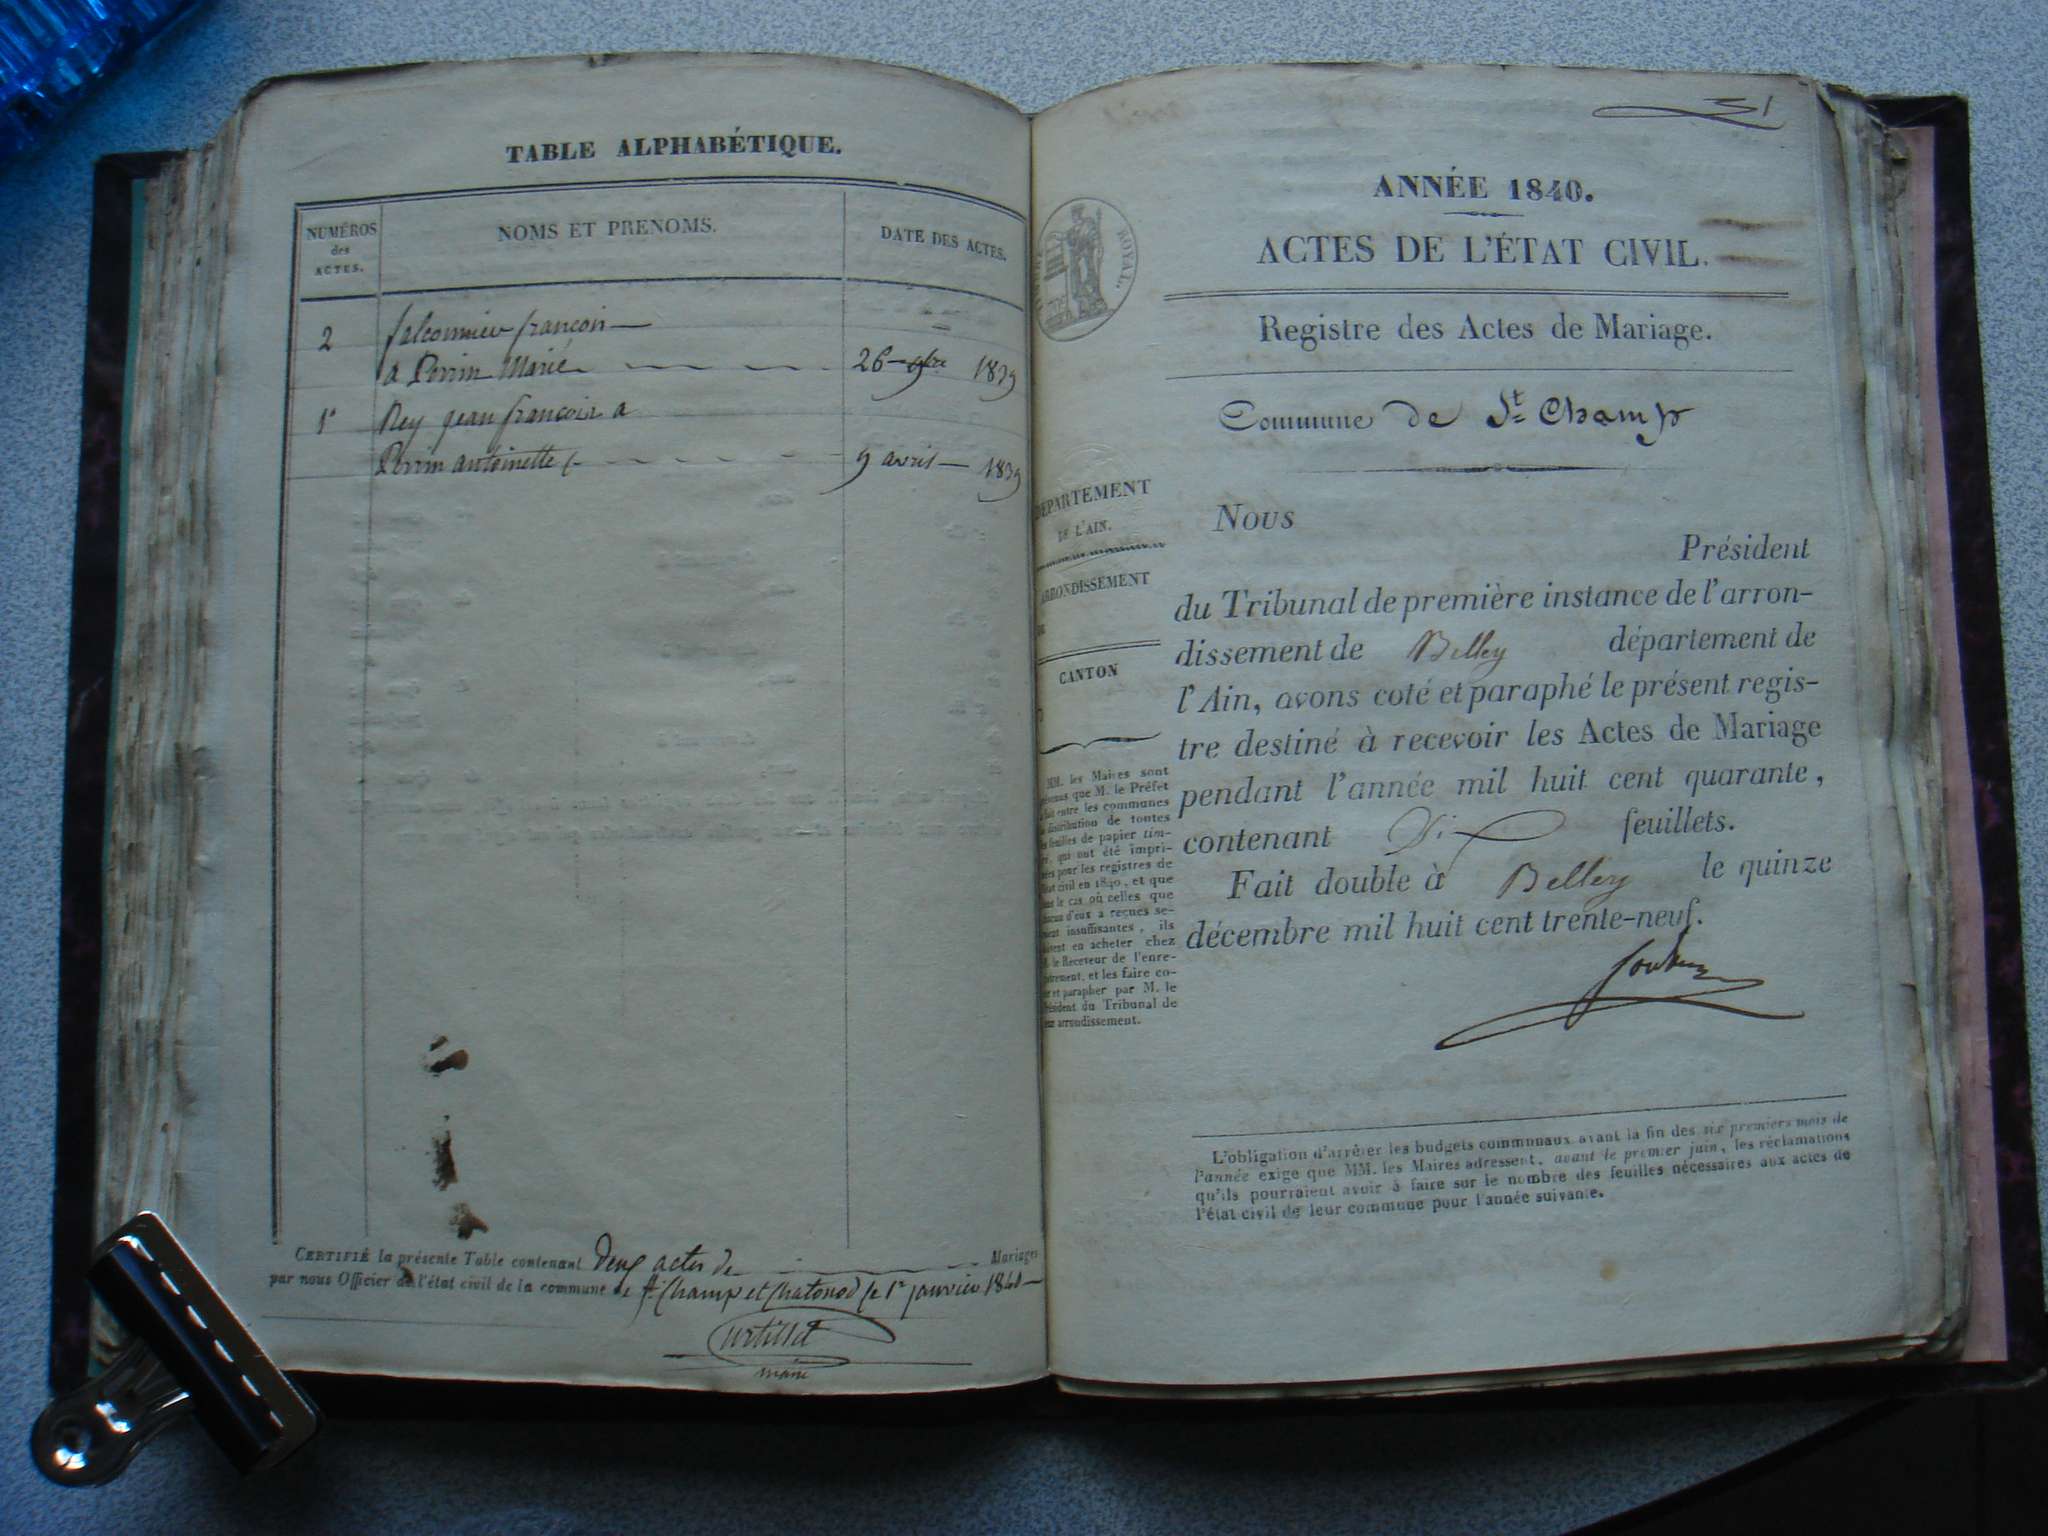 TABLE ALPHABÉTIQUE.
NUMÉROS
des
ACTES.
NOMS ET PRENOMS.
DATE DES ACTES.
2 falconnier françois
a Perrin Marie 26 9bre 1839
1º Rey jean françois a
Perrin antoinette 9 avril 1839
CERTIFIÉ la présente Table contenant deux actes de Mariages
par nous Officier de l'état civil de la commune de St. Champ et Chatonod le 1er janvier 1840
maire
31
ANNÉE 1840.
ACTES DE L'ÉTAT CIVIL.
Registre des Actes de Mariage.
Commune de St. Champ
ROYAL.
DÉPARTEMENT
DE L'AIN.
ARRONDISSEMENT
CANTON
MM. les Maires sont
que M. le Préfet
entre les communes
distribution de toutes
feuilles de papier tim-
qui ont été impri-
pour les registres de
civil en 1840, et que
le cas où celles que
d'eux a reçues se-
insuffisantes, ils
en acheter chez
le Receveur de l'enre-
et les faire co-
et parapher par M. le
Président du Tribunal de
arrondissement.
Nous
Président
du Tribunal de première instance de l'arron-
dissement de Belley département de
l'Ain, avons coté et paraphé le présent regis-
tre destiné à recevoir les Actes de Mariage
pendant l'année mil huit cent quarante,
contenant feuillets.
Fait double à Belley le quinze
décembre mil huit cent trente-neuf.
L'obligation d'arrêter les budgets communaux avant la fin des six premiers mois de
l'année exige que MM. les Maires adressent, avant le premier juin, les réclamations
qu'ils pourraient avoir à faire sur le nombre des feuilles nécessaires aux actes de
l'état civil de leur commune pour l'année suivante.